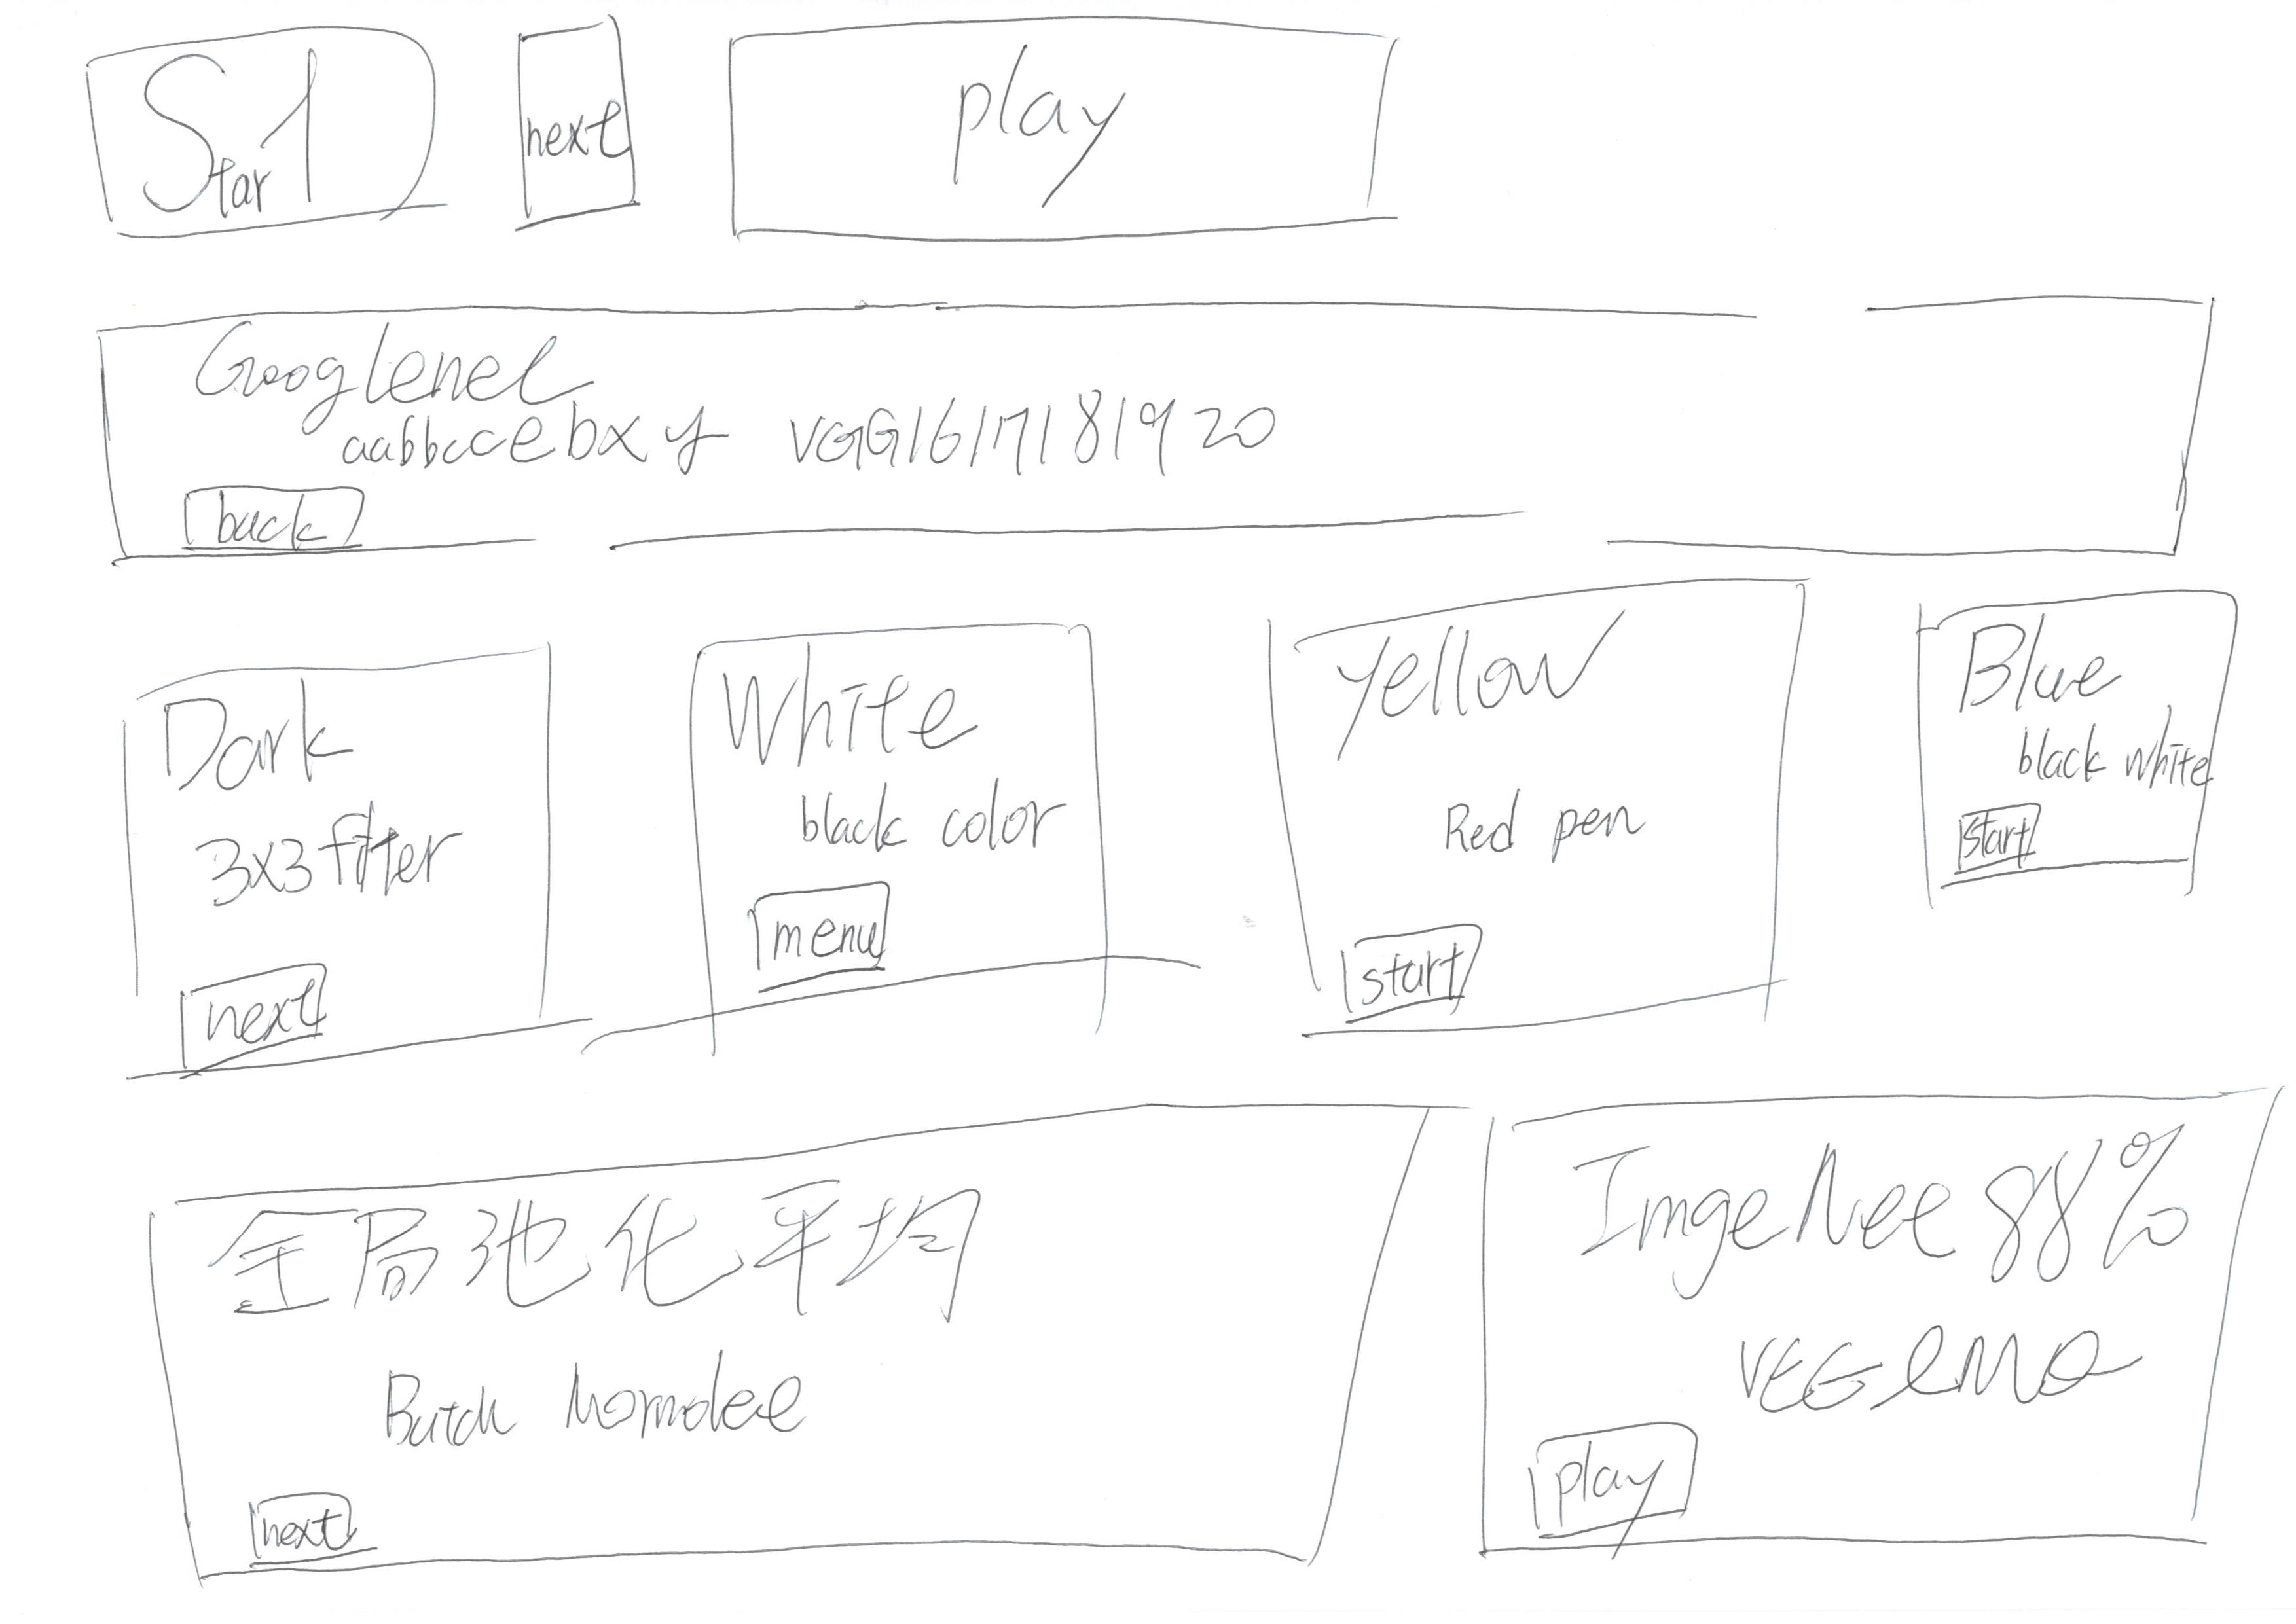 Star1
next
play
Googlenel
aabbccebxy VGG1617181920
back
Dark
3x3 filter
next
White
black color
menu
Yellow
Red pen
start
Blue
black white
start
全局池化平均
Batch
next
ImgeNee 88%
play